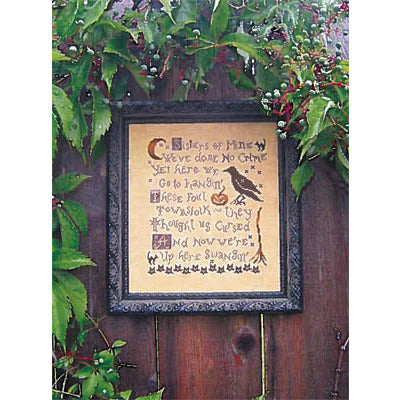 Sisters of Mine
We've done No Crime
Yet here we
Go to hangin'
These foul
Townsfolk ~ they
Thought us Cursed
And now we're
Up here Swangin'